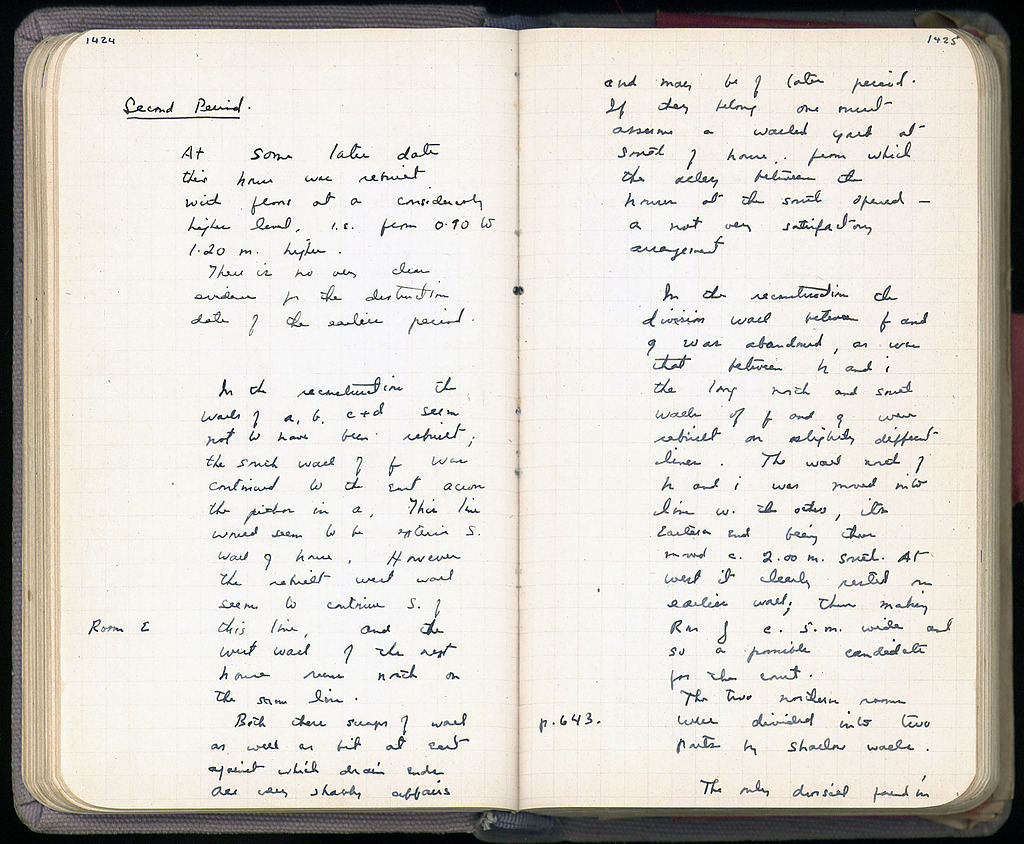 1424
Second Period.
At some later date
this house was rebuilt
with floors at a considerably
higher level, i.e. from 0.90 to
1.20 m. higher.
There is no very clear
evidence for the destruction
date of the earlier period.
In the reconstruction the
walls of a, b, c + d seem
not to have been rebuilt;
the south wall of f was
continued to the east across
the pithos in a. This line
would seem to be exterior S.
wall of house. However
the rebuilt west wall
seems to continue S. of
Room E
this line, and the
west wall of the next
house runs north on
the same line.
Both these scraps of wall
as well as bit at east
against which drain ends
are very shabby affairs
1425
and may be of later period.
If they belong one must
assume a walled yard at
south of house, from which
the alley between the
houses at the south opened —
a not very satisfactory
arrangement
In the reconstruction the
division wall between f and
g was abandoned, as was
that between h and i
the long north and south
walls of f and g were
rebuilt on slightly different
lines. The wall north of
h and i was moved into
line w. the others, its
Eastern end being thus
moved c. 2.00 m. south. At
west it clearly rested on
earlier wall; thus making
Rm f c. 5.m. wide and
so a possible candidate
for the court.
The two northern rooms
p. 643.
were divided into two
parts by shallow walls.
The only division found in